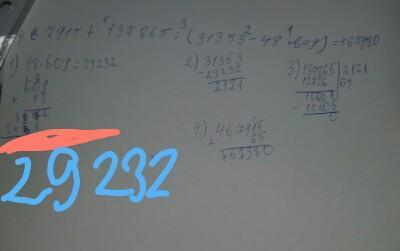 467915 + 137865 : (31353 - 48 · 609) = 467980
1) 48 · 609 = 29232
2) 31353
- 29232
2121
3) 137865 | 2121
12726 65
10605
- 10605
0
609
× 48
4) 467915
+ 65
467980
29232